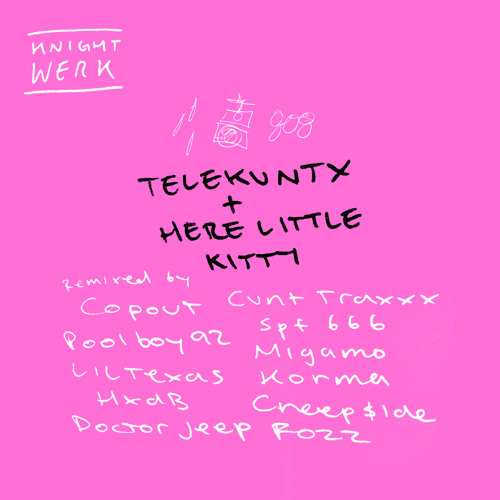 KNIGHT
WERK
gos
TELEKUNTX
+
HERE LITTLE
KITTY
Remixed by
Copout Cvnt Traxxx
Poolboy92 Spf 666
LiLTexas Migamo
HxdB Korma
Doctor Jeep Creep$ide
Rozz